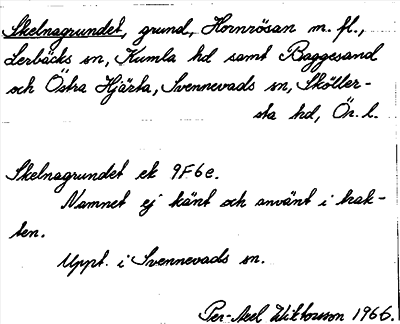 Skelnagrundet, grund, Hornrösan m. fl.,
Lerbäcks sn, Kumla hd samt Baggesand
och Östra Hjärta, Svennevads sn, Sköller-
sta hd, Ör. l.
Skelnagrundet ek 9F6e.
Namnet ej känt och använt i trak-
ten.
Uppt. i Svennevads sn.
Per-Axel Wiktorsson 1966.